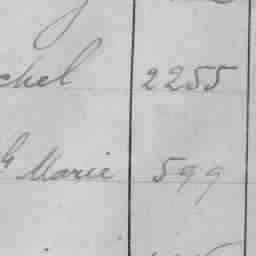 chel 2255
Marie 599